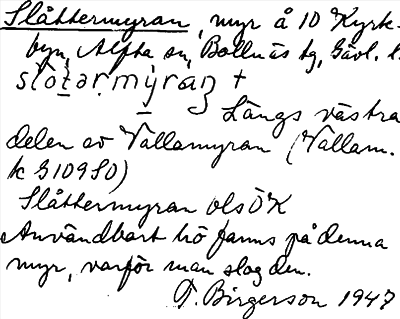 Slåttermyran, myr å 10 Kyrk-
byn, Alfta sn, Bollnäs tg, Gävl. l.
slo̱tərmỳran +
Längs västra
delen av Vallamyran (Vallam.
k G109S0)
Slåttermyran olsÖK
Användbart hö fanns på denna
myr, varför man slog den.
T. Birgerson 1947